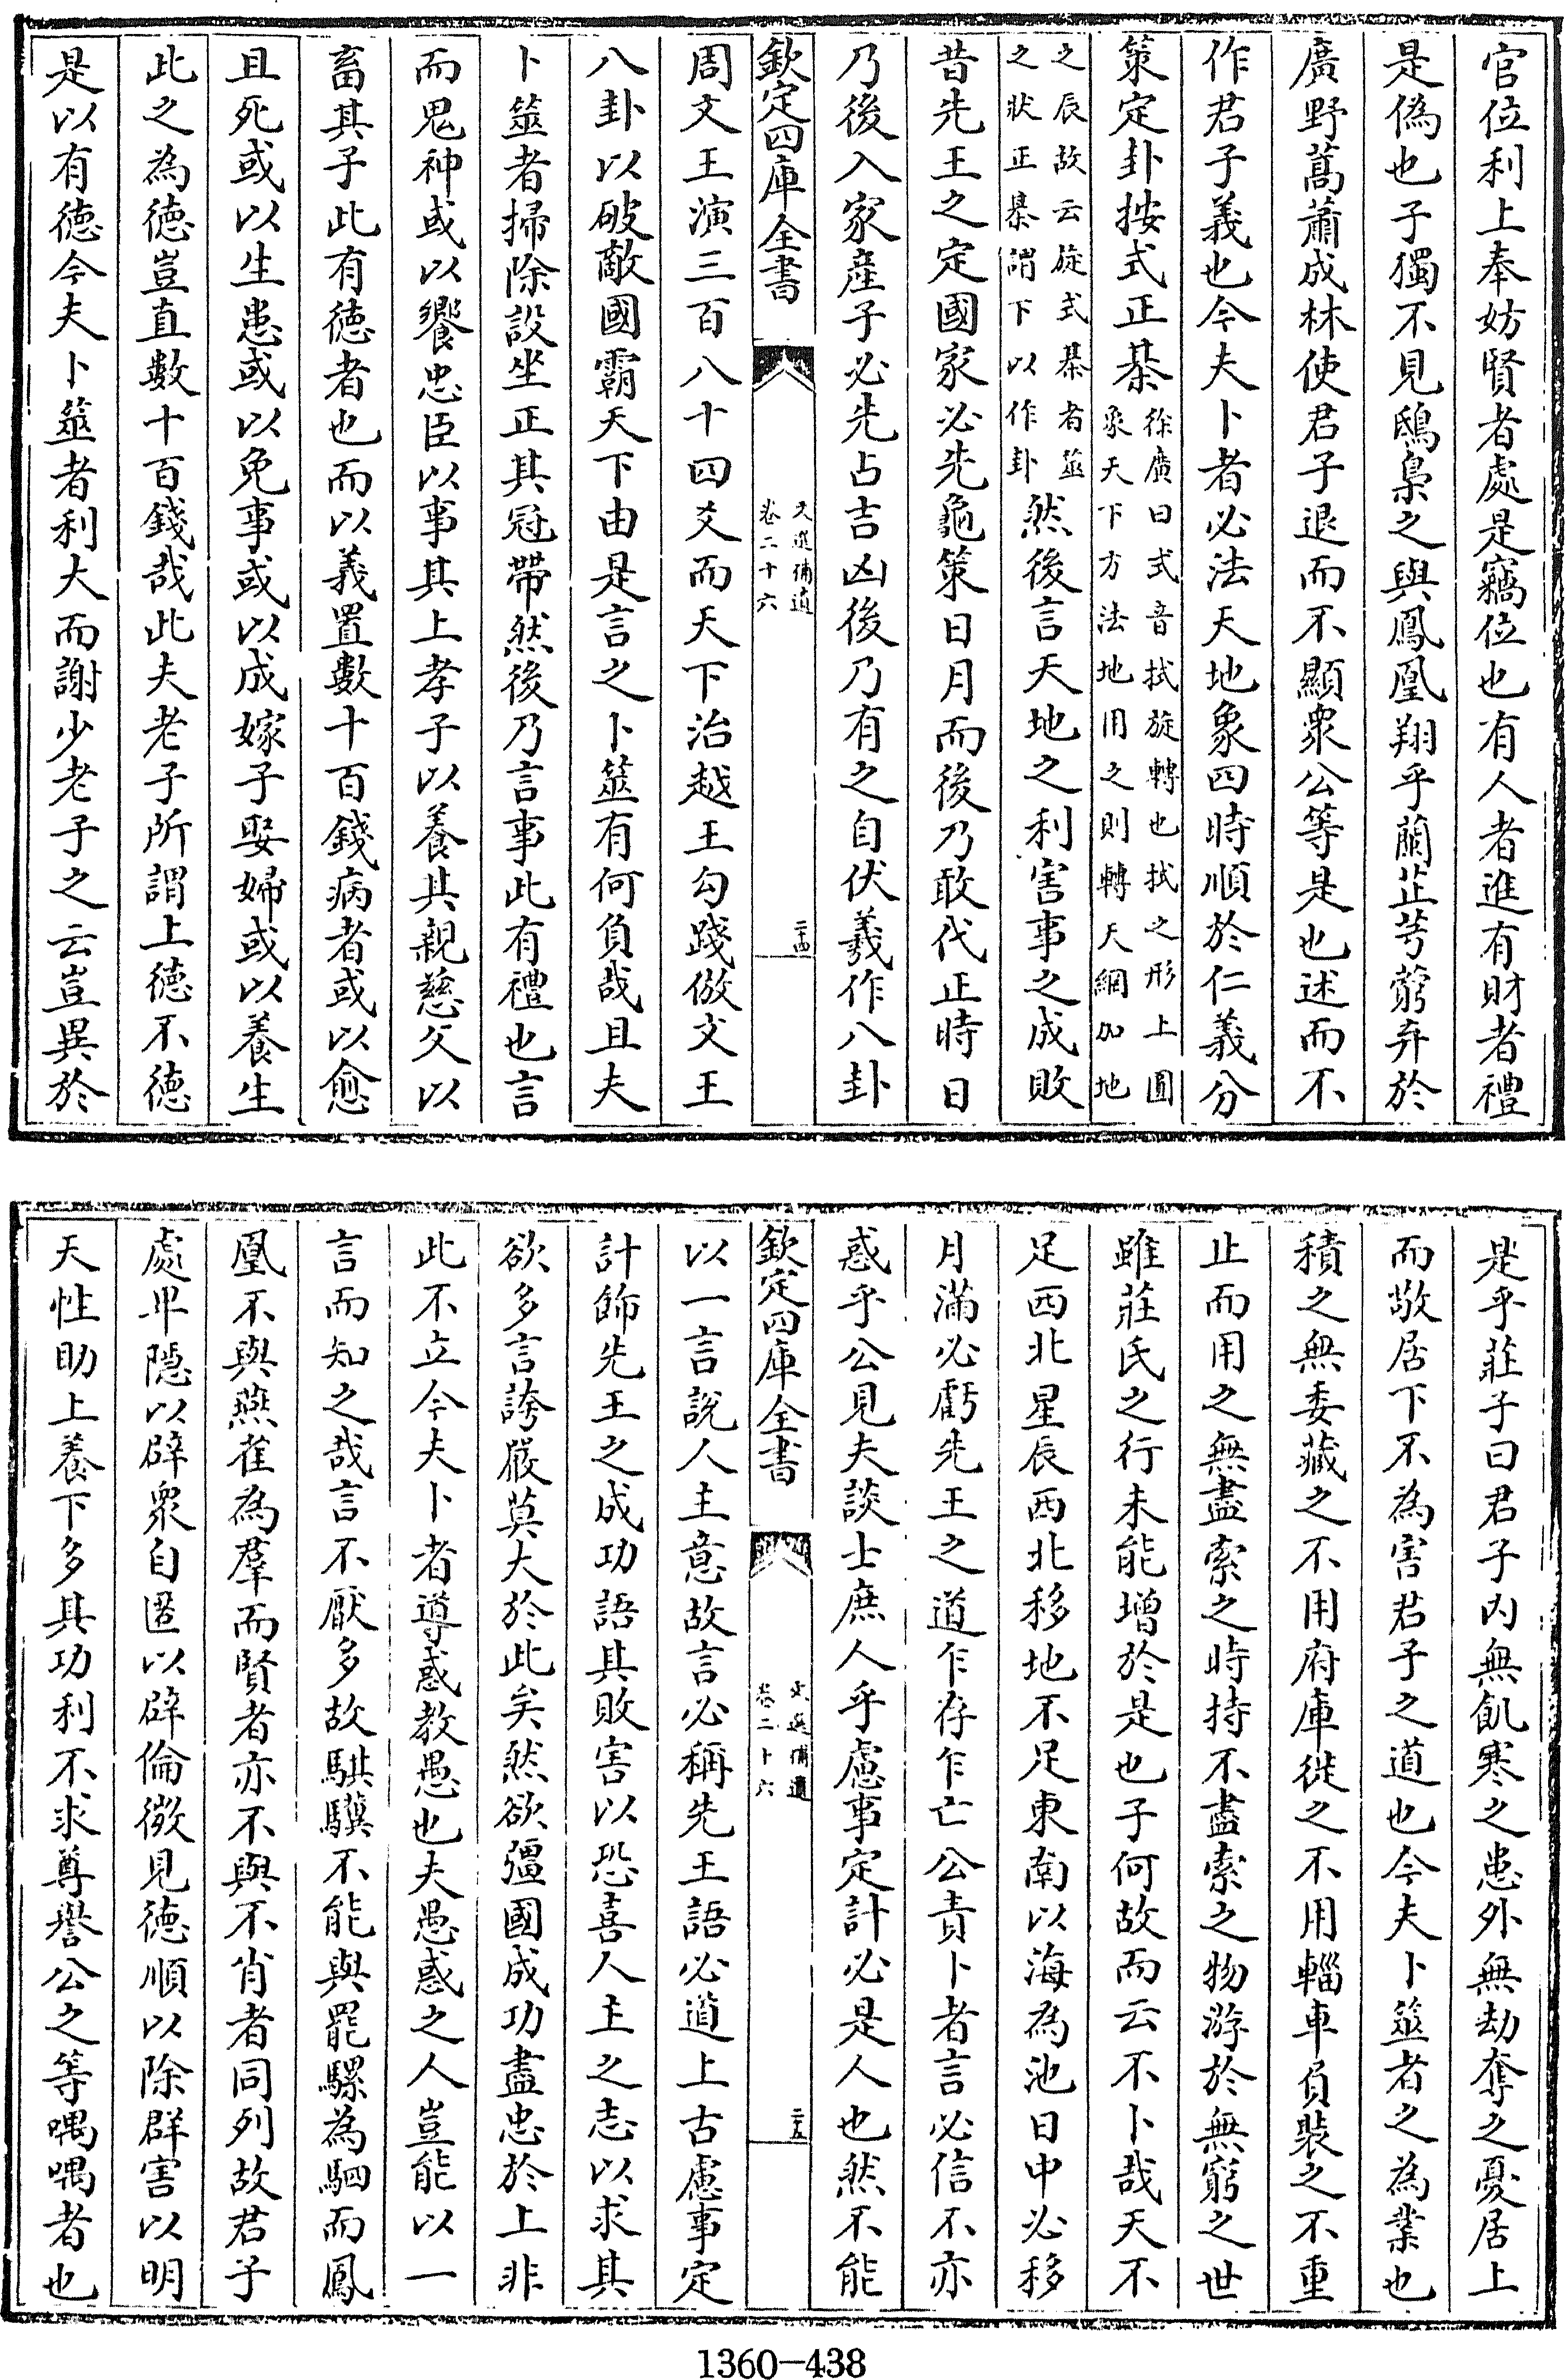 官位利上奉妨賢者處是竊位也有人者進有財者禮
是偽也子獨不見鴟梟之與鳳凰翔乎蘭芷芎藭弃於
廣野蒿蕭成林使君子退而不顯衆公等是也述而不
作君子義也今夫卜者必法天地象四時順於仁義分
策定卦按式正棊徐廣曰式音拭旋轉也拭之形上圓
象天下方法地用之則轉天綱加地
之辰故云旋式棊者筮
之狀正棊謂下以作卦然後言天地之利害事之成敗
昔先王之定國家必先龜策日月而後乃敢代正時日
乃後入家産子必先占吉凶後乃有之自伏羲作八卦
欽定四庫全書
文選補遺
卷二十六
二十四
周文王演三百八十四爻而天下治越王勾踐倣文王
八卦以破敵國霸天下由是言之卜筮有何負哉且夫
卜筮者掃除設坐正其冠帶然後乃言事此有禮也言
而鬼神或以饗忠臣以事其上孝子以養其親慈父以
畜其子此有徳者也而以義置數十百錢病者或以愈
且死或以生患或以免事或以成嫁子娶婦或以養生
此之為徳豈直數十百錢哉此夫老子所謂上徳不徳
是以有徳今夫卜筮者利大而謝少老子之云豈異於
是乎莊子曰君子内無飢寒之患外無劫奪之憂居上
而敬居下不為害君子之道也今夫卜筮者之為業也
積之無委藏之不用府庫徙之不用輜車負裝之不重
止而用之無盡索之時持不盡索之物游於無窮之世
雖莊氏之行未能增於是也子何故而云不卜哉天不
足西北星辰西北移地不足東南以海為池日中必移
月滿必虧先王之道乍存乍亡公責卜者言必信不亦
惑乎公見夫談士庶人乎慮事定計必是人也然不能
欽定四庫全書
文選補遺
卷二十六
二十五
以一言說人主意故言必稱先王語必道上古慮事定
計飾先王之成功語其敗害以恐喜人主之志以求其
欲多言誇嚴莫大於此矣然欲彊國成功盡忠於上非
此不立今夫卜者導惑教愚也夫愚惑之人豈能以一
言而知之哉言不厭多故騏驥不能與罷騾為駟而鳳
凰不與燕雀為羣而賢者亦不與不肖者同列故君子
處卑隠以辟衆自匿以辟倫微見徳順以除群害以明
天性助上養下多其功利不求尊譽公之等喁喁者也
1360-438